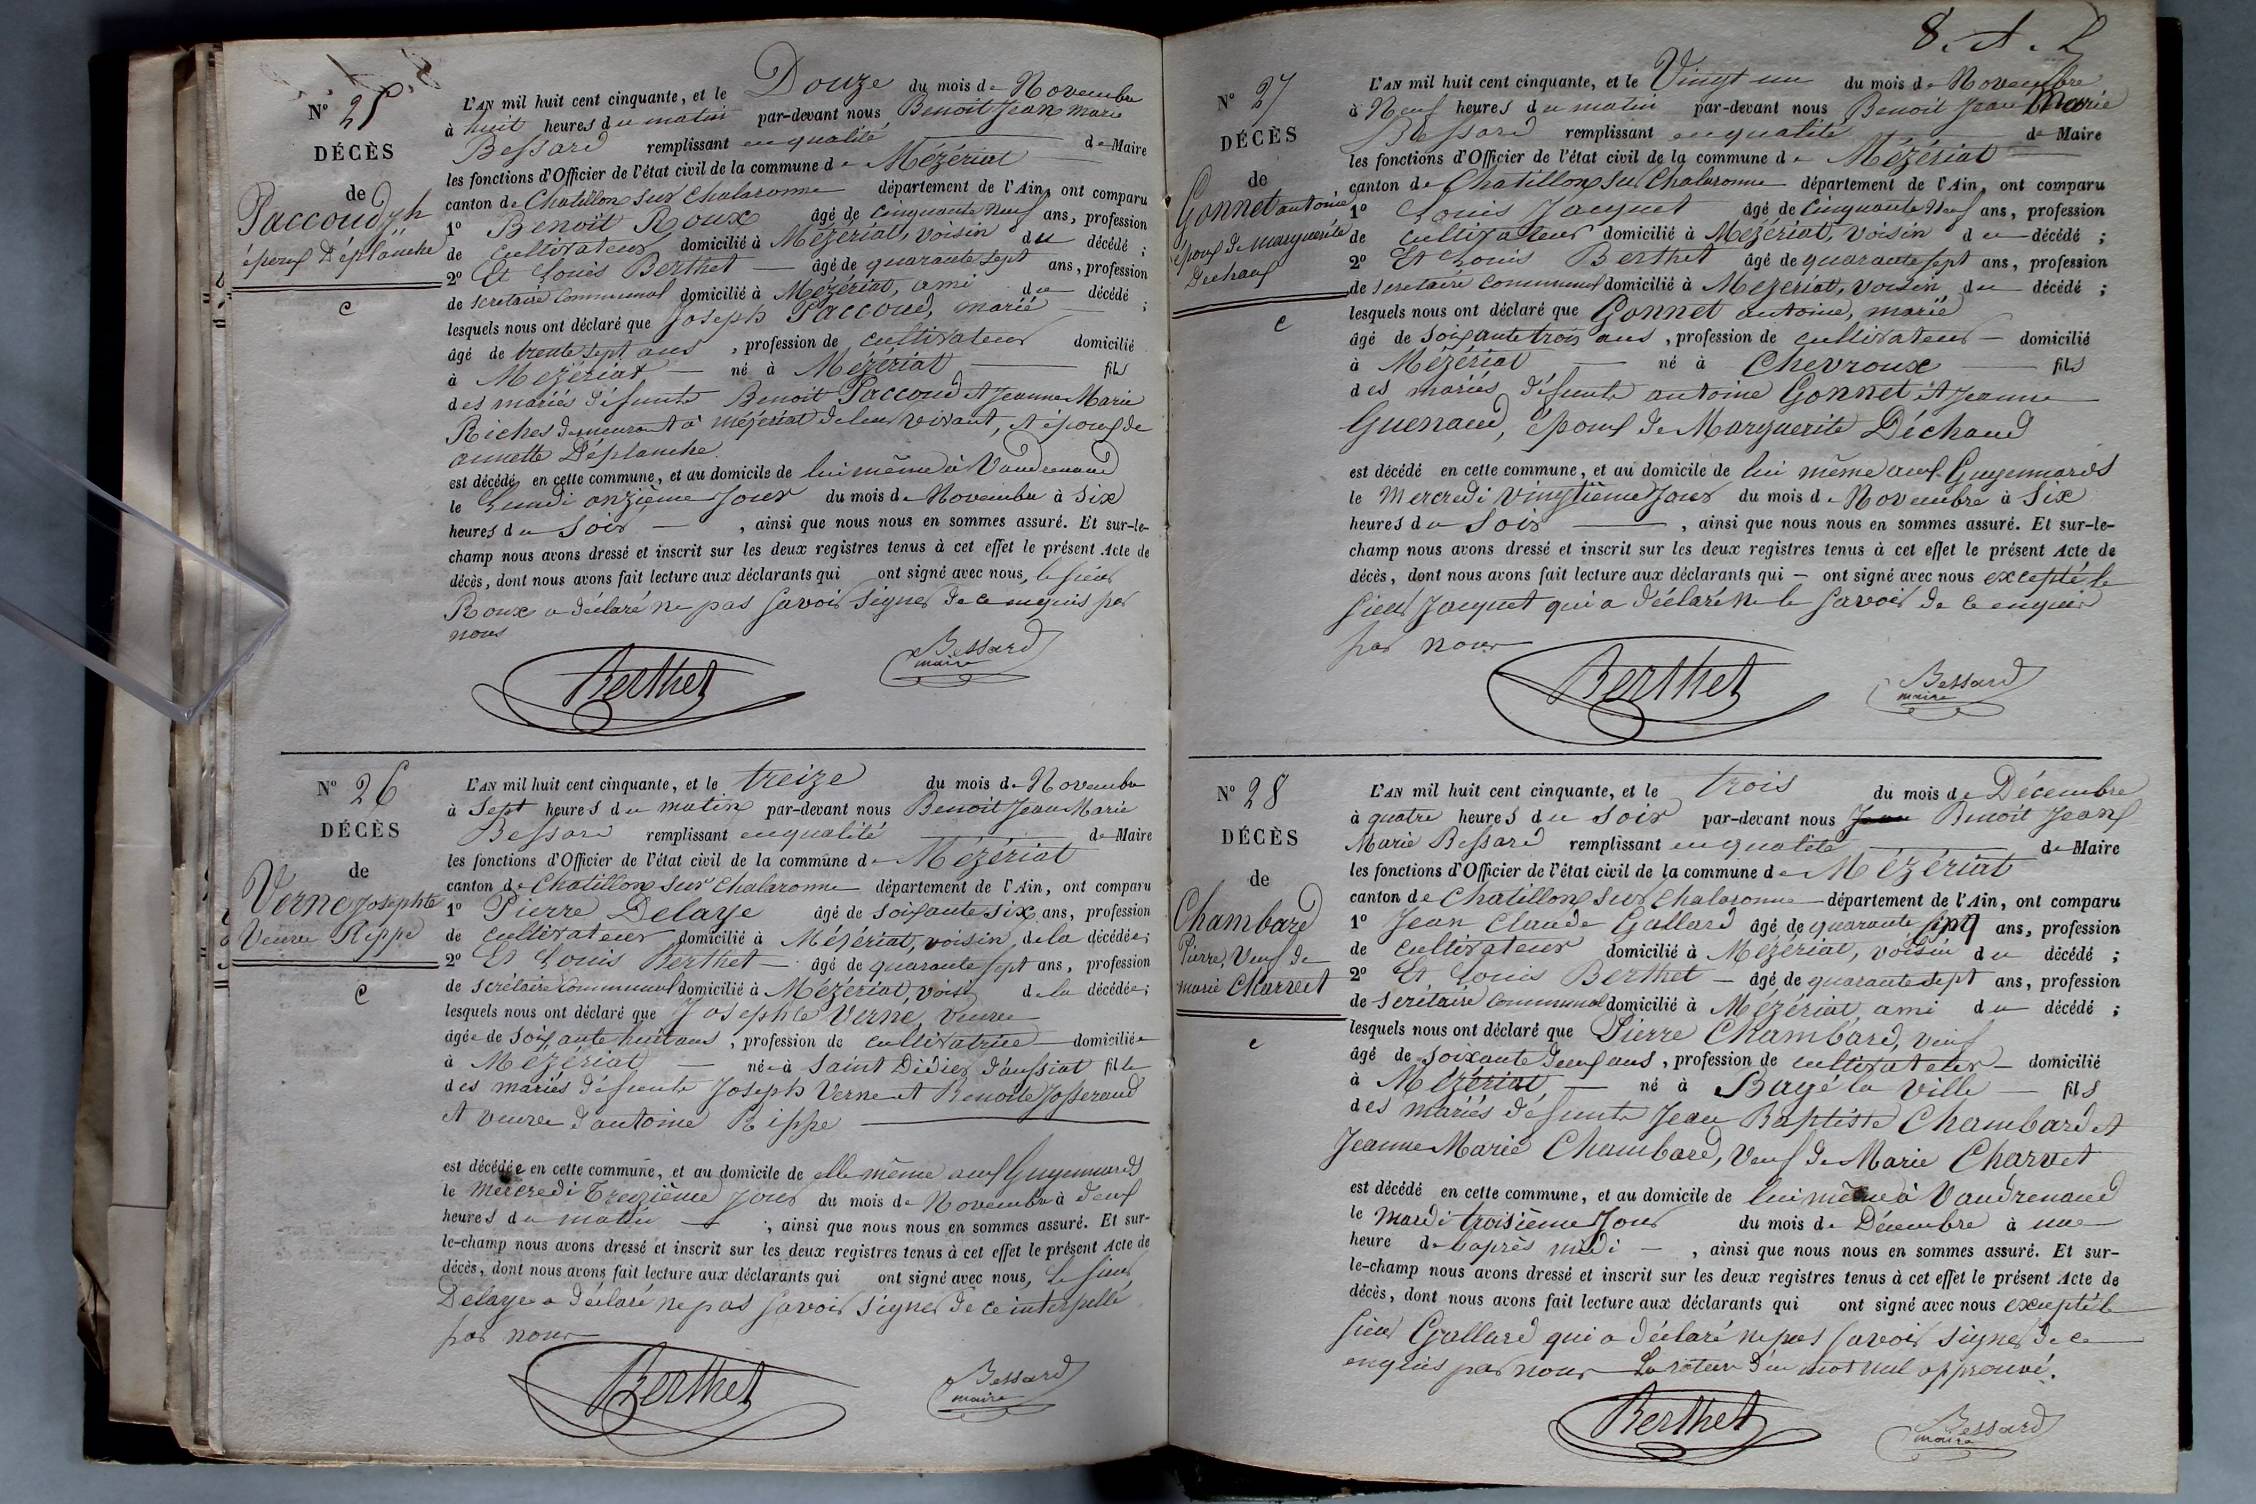 N° 25
DÉCÈS
de
Paccoud jh
époux Déplanche
C
L'AN mil huit cent cinquante, et le Douze du mois de Novembre
à huit heures du matin par-devant nous Benoit Jean Marie
Bessard remplissant en qualité de Maire
les fonctions d'Officier de l'état civil de la commune de Mézériat
canton de Chatillon sur Chalaronne département de l'Ain, ont comparu
1° Benoit Roux âgé de cinquante neuf ans, profession
de cultivateur domicilié à Mézériat, voisin du décédé ;
2° Et Louis Berthet âgé de quarante sept ans, profession
de secrétaire communal domicilié à Mézériat, ami du décédé ;
lesquels nous ont déclaré que Joseph Paccoud, marié
âgé de trente sept ans, profession de cultivateur domicilié
à Mézériat né à Mézériat fils
des mariés défunts Benoit Paccoud et Jeanne Marie
Riches demeurant à mézériat de leur vivant, et époux de
annette Déplanche.
est décédé en cette commune, et au domicile de lui même à Vaudrenaud
le Lundi onzième jour du mois de Novembre à Six
heures du Soir, ainsi que nous nous en sommes assuré. Et sur-le-
champ nous avons dressé et inscrit sur les deux registres tenus à cet effet le présent Acte de
décès, dont nous avons fait lecture aux déclarants qui ont signé avec nous, le sieur
Roux a déclaré ne pas savoir signer de ce enquis par
nous
Berthet
Bessard
maire
N° 26
DÉCÈS
de
Verne Josephte
Veuve Rippe
C
L'AN mil huit cent cinquante, et le treize du mois de Novembre
à Sept heures du matin par-devant nous Benoit Jean Marie
Bessard remplissant en qualité de Maire
les fonctions d'Officier de l'état civil de la commune de Mézériat
canton de Chatillon sur Chalaronne département de l'Ain, ont comparu
1° Pierre Delaye âgé de soixante six ans, profession
de cultivateur domicilié à Mézériat, voisin de la décédée ;
2° Et Louis Berthet âgé de quarante sept ans, profession
de secrétaire communal domicilié à Mézériat, voisin de la décédée ;
lesquels nous ont déclaré que Josephte Verne, veuve
âgée de soixante huit ans, profession de cultivatrice domiciliée
à Mézériat née à Saint Didier d'aussiat fille
des mariés défunts Joseph Verne et Benoite Josserand
et veuve d'antoine Rippe
est décédée en cette commune, et au domicile de elle même aux Guyennards
le Mercredi Treizième jour du mois de Novembre à deux
heures du matin, ainsi que nous nous en sommes assuré. Et sur-
le-champ nous avons dressé et inscrit sur les deux registres tenus à cet effet le présent Acte de
décès, dont nous avons fait lecture aux déclarants qui ont signé avec nous, Le sieur
Delaye a déclaré ne pas savoir signer de ce interpellé
par nous
Berthet
Bessard
maire
8. A. 2
N° 27
DÉCÈS
de
Gonnet antoine
époux de Marguerite
Dechaux
C
L'AN mil huit cent cinquante, et le Vingt un du mois de Novembre
à Neuf heures du matin par-devant nous Benoit Jean Marie
Bessard remplissant en qualité de Maire
les fonctions d'Officier de l'état civil de la commune de Mézériat
canton de Chatillon sur Chalaronne département de l'Ain, ont comparu
1° Louis Jacquet âgé de cinquante Neuf ans, profession
de cultivateur domicilié à Mézériat, voisin du décédé ;
2° Et Louis Berthet âgé de quarante sept ans, profession
de secrétaire communal domicilié à Mézériat, voisin du décédé ;
lesquels nous ont déclaré que Gonnet antoine, marié
âgé de soixante trois ans, profession de cultivateur domicilié
à Mézériat né à Chevroux fils
des mariés défunts antoine Gonnet et Jeanne
Guenaud, époux de Marguerite Déchaud
est décédé en cette commune, et au domicile de lui même aux Guyennards
le Mercredi Vingtième Jour du mois de Novembre à Six
heures du Soir, ainsi que nous nous en sommes assuré. Et sur-le-
champ nous avons dressé et inscrit sur les deux registres tenus à cet effet le présent Acte de
décès, dont nous avons fait lecture aux déclarants qui ont signé avec nous excepté le
sieur Jacquet qui a déclaré ne le savoir de ce enquis
par nous
Berthet
Bessard
maire
N° 28
DÉCÈS
de
Chambard
Pierre, Veuf de
marie Charvet
c
L'AN mil huit cent cinquante, et le trois du mois de Décembre
à quatre heures du Soir par-devant nous Jean Benoit Jean
Marie Bessard remplissant en qualité de Maire
les fonctions d'Officier de l'état civil de la commune de Mézériat
canton de Chatillon sur Chalaronne département de l'Ain, ont comparu
1° Jean Claude Gallard âgé de quarante sept ans, profession
de cultivateur domicilié à Mézériat, voisin du décédé ;
2° Et Louis Berthet âgé de quarante sept ans, profession
de secrétaire communal domicilié à Mézériat, ami du décédé ;
lesquels nous ont déclaré que Pierre Chambard, veuf
âgé de soixante deux ans, profession de cultivateur domicilié
à Mézériat, né à Bagé la Ville fils
des mariés défunts Jean Baptiste Chambard et
Jeanne Marie Chambard, Veuf de Marie Charvet
est décédé en cette commune, et au domicile de lui même à Vaudrenaud
le Mardi troisième Jour du mois de Décembre à une
heure de l'après midi, ainsi que nous nous en sommes assuré. Et sur-
le-champ nous avons dressé et inscrit sur les deux registres tenus à cet effet le présent Acte de
décès, dont nous avons fait lecture aux déclarants qui ont signé avec nous excepté le
sieur Gallard qui a déclaré ne pas savoir signer de ce
enquis par nous La rature d'un mot nul approuvé.
Berthet
Bessard
maire